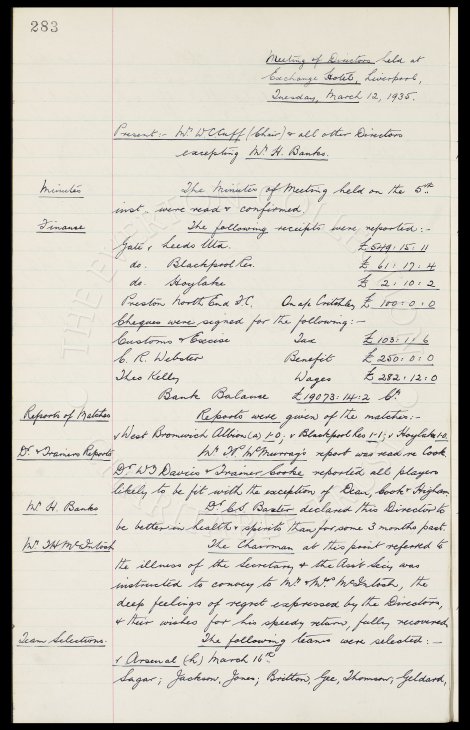 283
Meeting of Directors held at
Exchange Hotel, Liverpool,
Tuesday, March 12, 1935.
Present:- Mr. W C Cuff (Chair) & all other Directors
excepting Mr. H. Banks.
Minutes The Minutes of Meeting held on the 5th
inst. were read & confirmed
Finance The following receipts were reported:-
Gate v Leeds Utd. £ 549:15:11
do. Blackpool Res. £ 61:17:4
do. Hoylake £ 2:10:2
Preston North End F.C. On a/c Critchley £ 100:0:0
Cheques were signed for the following:-
Customs & Excise Tax £ 103:1:6
C. R. Webster Benefit £ 250:0:0
Theo Kelly Wages £ 282:12:0
Bank Balance £19073:14:2 Cr.
Reports of Matches Reports were given of the matches:-
v West Bromwich Albion (a) 1-0; v Blackpool Res 1-1; v Hoylake 1-0
Dr. & Trainers Reports Mr. McMurray's report was read re Cook
Dr. W J Davies & Trainer Cooke reported all players
likely to be fit with the exception of Dean, Cook & Higham
Mr. H. Banks Dr. C S. Baxter declared this Director to
be better in health & spirits than for some 3 months past.
Mr. T H McIntosh The Chairman at this point referred to
the illness of the Secretary & the Asst Secy was
instructed to convey to Mr. & Mrs. McIntosh, the
deep feelings of regret expressed by the Directors,
& their wishes for his speedy return, fully recovered
Team Selections. The following teams were selected:-
v Arsenal (h) March 16th
Sagar; Jackson, Jones; Britton, Gee, Thomson; Geldard,